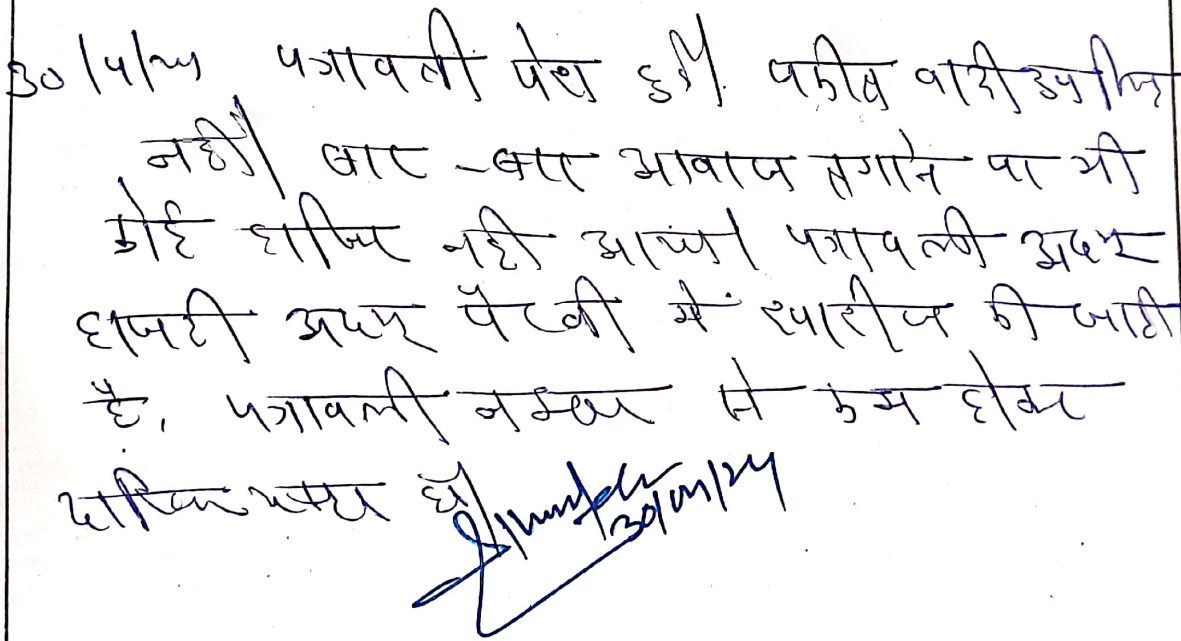 30/4/24 पत्रावली पेश हुई। वकील वादी उपस्थित
नहीं। बार-बार आवाज लगाने पर भी
कोई हाजिर नहीं आया। पत्रावली अदम
हाजरी अदम पैरवी में खारीज की जाती
है, पत्रावली नम्बर से कम होकर
दाखिल दफ्तर हो।